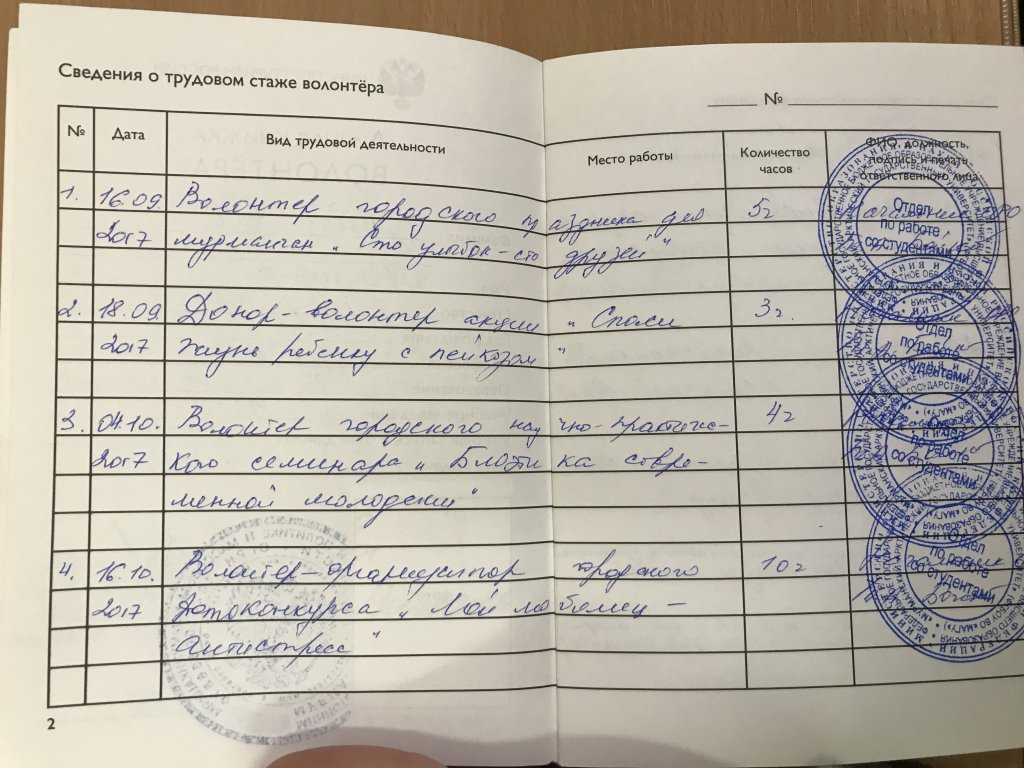 Сведения о трудовом стаже волонтёра
№
№ Дата Вид трудовой деятельности Место работы Количество часов ФИО, должность, подпись и печать ответственного лица
1. 16.09 Волонтер городского праздника для 5ч
2017 мурманчан „Сто улыбок-сто друзей"
2. 18.09 Донор-волонтер акции „Спаси 3ч.
2017 жизнь ребенку с лейкозом"
3. 04.10. Волонтер городского научно-практичес- 4ч
2017 кого семинара „Биоэтика совре-
менной молодежи"
4. 16.10. Волонтер-организатор городского 10ч
2017 Фотоконкурса „Мой любимец -
Антистресс"
Отдел
по работе
со студентами
Отдел
по работе
со студентами
Отдел
по работе
со студентами
Отдел
по работе
со студентами
2